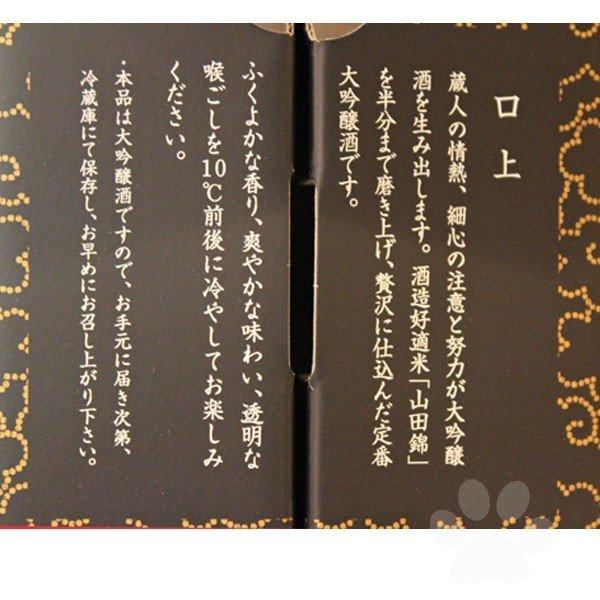 口上
蔵人の情熱、細心の注意と努力が大吟醸
酒を生み出します。酒造好適米「山田錦」
を半分まで磨き上げ、贅沢に仕込んだ定番
大吟醸酒です。
ふくよかな香り、爽やかな味わい、透明な
喉ごしを10℃前後に冷やしてお楽しみ
ください。
・本品は大吟醸酒ですので、お手元に届き次第、
冷蔵庫にて保存し、お早めにお召し上がり下さい。